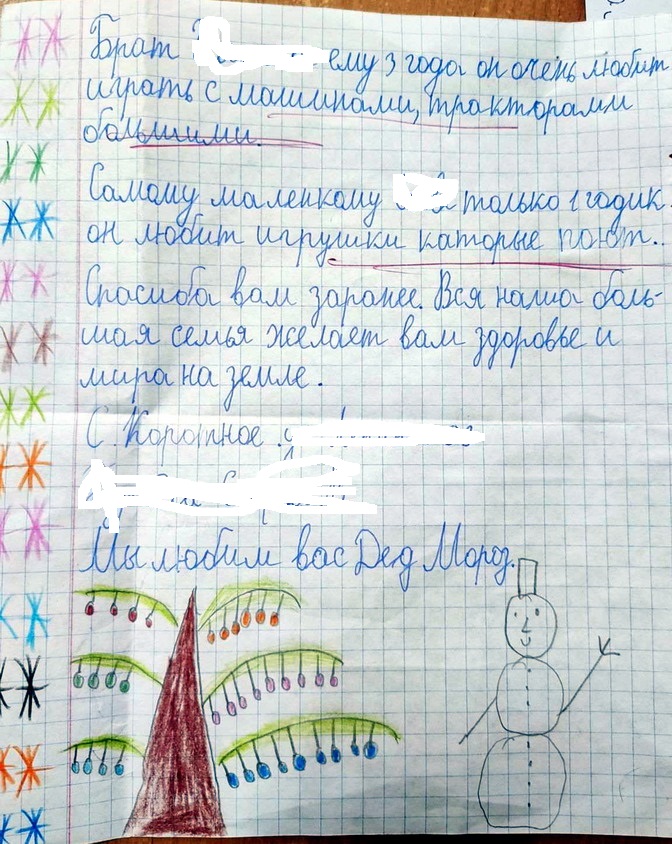 Брат ему 3 года он очень любит
играть с машинами, тракторами
большими.
Самому маленкому только 1 годик.
он любит игрушки каторые поют.
Спасиба вам заранее. Вся наша боль-
шая семья желает вам здоровье и
мира на земле.
С. Коротное
Мы любим вас Дед Мороз.